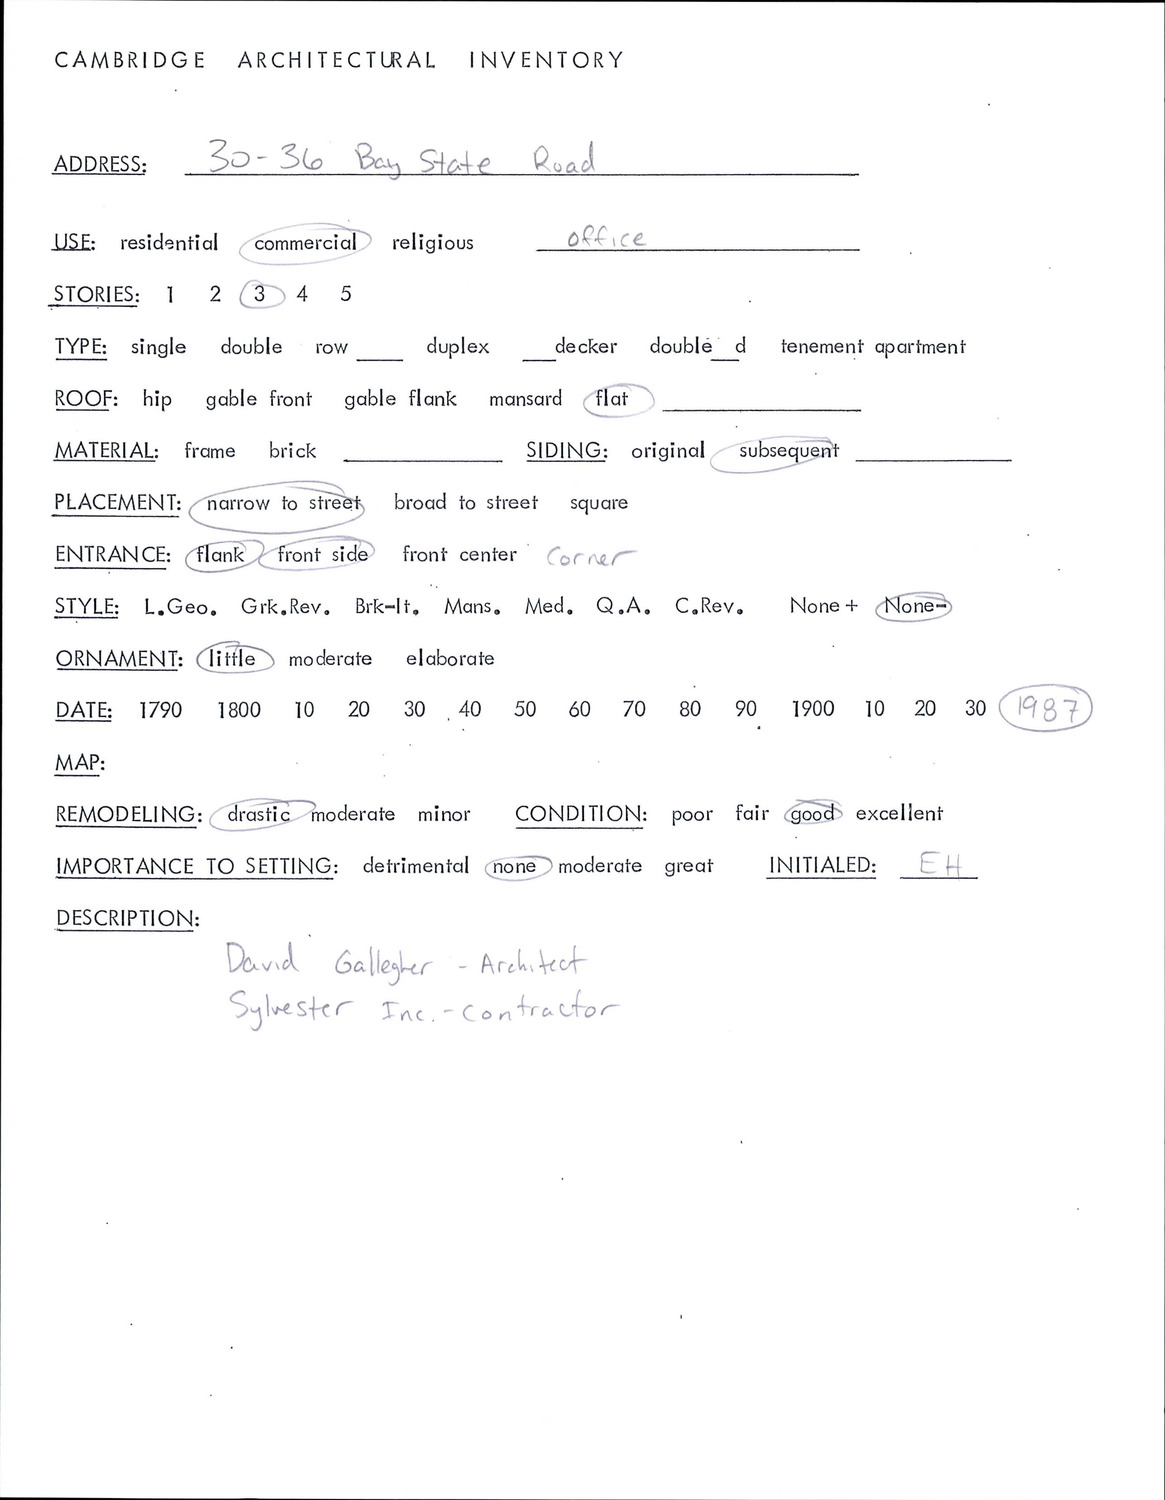 CAMBRIDGE ARCHITECTURAL INVENTORY
ADDRESS: 30-36 Bay State Road
USE: residential commercial religious office
STORIES: 1 2 3 4 5
TYPE: single double row ___ duplex ___decker double__d tenement apartment
ROOF: hip gable front gable flank mansard flat ___
MATERIAL: frame brick ___ SIDING: original subsequent ___
PLACEMENT: narrow to street broad to street square
ENTRANCE: flank front side front center Corner
STYLE: L.Geo. Grk.Rev. Brk-It. Mans. Med. Q.A. C.Rev. None+ None-
ORNAMENT: little moderate elaborate
DATE: 1790 1800 10 20 30 40 50 60 70 80 90 1900 10 20 30 1987
MAP:
REMODELING: drastic moderate minor CONDITION: poor fair good excellent
IMPORTANCE TO SETTING: detrimental none moderate great INITIALED: EH
DESCRIPTION:
David Gallegher - Architect
Sylvester Inc. - Contractor